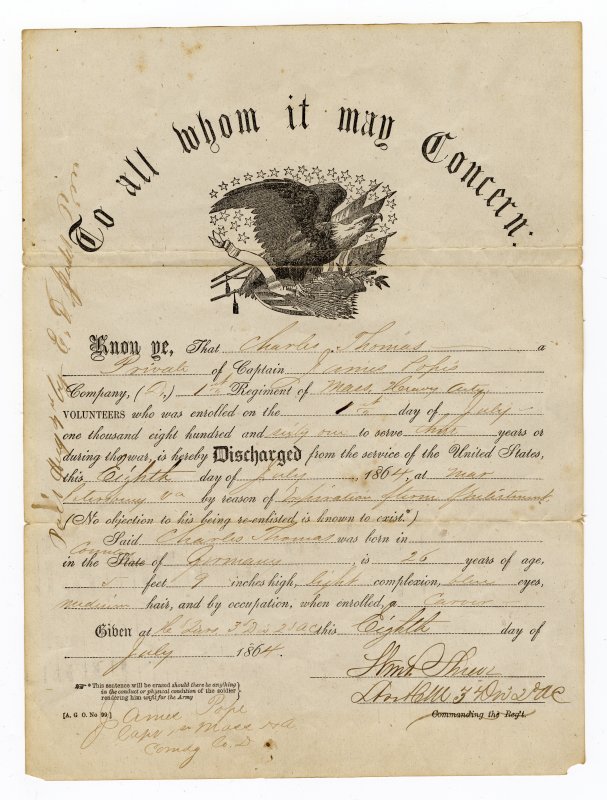 To all whom it may Concern:
Know ye, That Charles Thomas a
Private of Captain James Pope
Company, (D.) 1st Regiment of Mass. Heavy Arty
VOLUNTEERS who was enrolled on the 1st day of July
one thousand eight hundred and sixty one to serve three years or
during the war, is hereby Discharged from the service of the United States,
this Eighth day of July 1864, at near
Petersburg Va by reason of Expiration of term of Enlistment
(No objection to his being re-enlisted is known to exist.*)
Said Charles Thomas was born in
Country
in the State of Germany, is 26 years of age,
5 feet 9 inches high, light complexion, blue eyes,
medium hair, and by occupation, when enrolled, a Carver
Given at Hd Qurs. 3d Div 2d AC this Eighth day of
July 1864.
*This sentence will be erased should there be anything
in the conduct or physical condition of the soldier
rendering him unfit for the Army
[A. G. O. No. 99]
3d Div 2d AC
Commanding the Reg't.
James Pope
Capt 1st Mass HA
Comdg Co. D